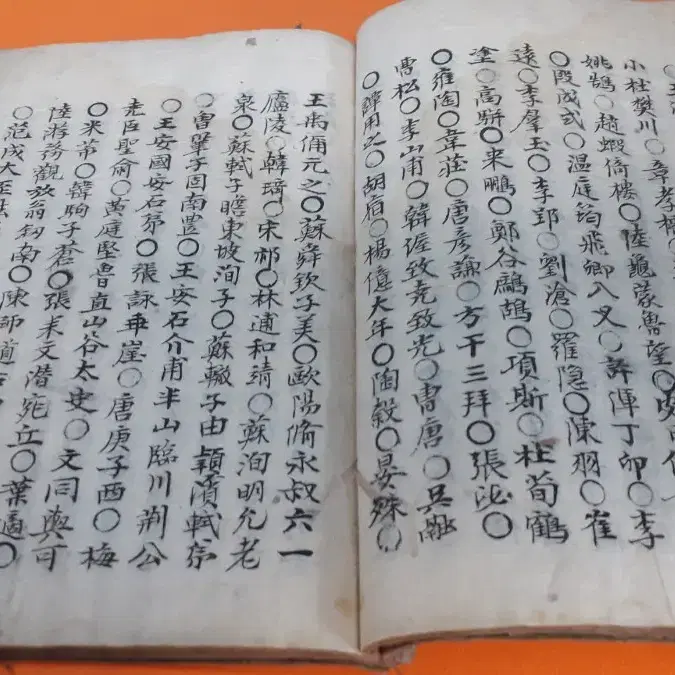 小杜樊川○章孝標
姚鵠○趙嘏倚樓○陸龜蒙魯望○
○段成式○温庭筠飛卿八叉○許渾丁卯○李
遠○李羣玉○李郢○劉滄○羅隱○陳羽○崔
塗○高駢○來鵬○鄭谷鷓鴣○項斯○杜荀鶴
○雍陶○韋莊○唐彦謙○方干三拜○張泌○
曹松○李山甫○韓偓致堯致光○曹唐○吳融
○譚用之○胡宿○楊億大年○陶穀○晏殊○
王禹偁元之○蘇舜欽子美○歐陽脩永叔六一
廬陵○韓琦○宋祁○林逋和靖○蘇洵明允老
泉○蘇軾子瞻東坡洵子○蘇轍子由穎濱軾弟
○曾鞏子固南豊○王安石介甫半山臨川荆公
○王安國安石弟○張詠乖崖○唐庚子西○梅
堯臣聖俞○黄庭堅魯直山谷太史○文同與可
○米芾○韓駒子蒼○張耒文潜宛丘○葉適○
陸游務觀放翁釼南○陳師道
○范成大至能